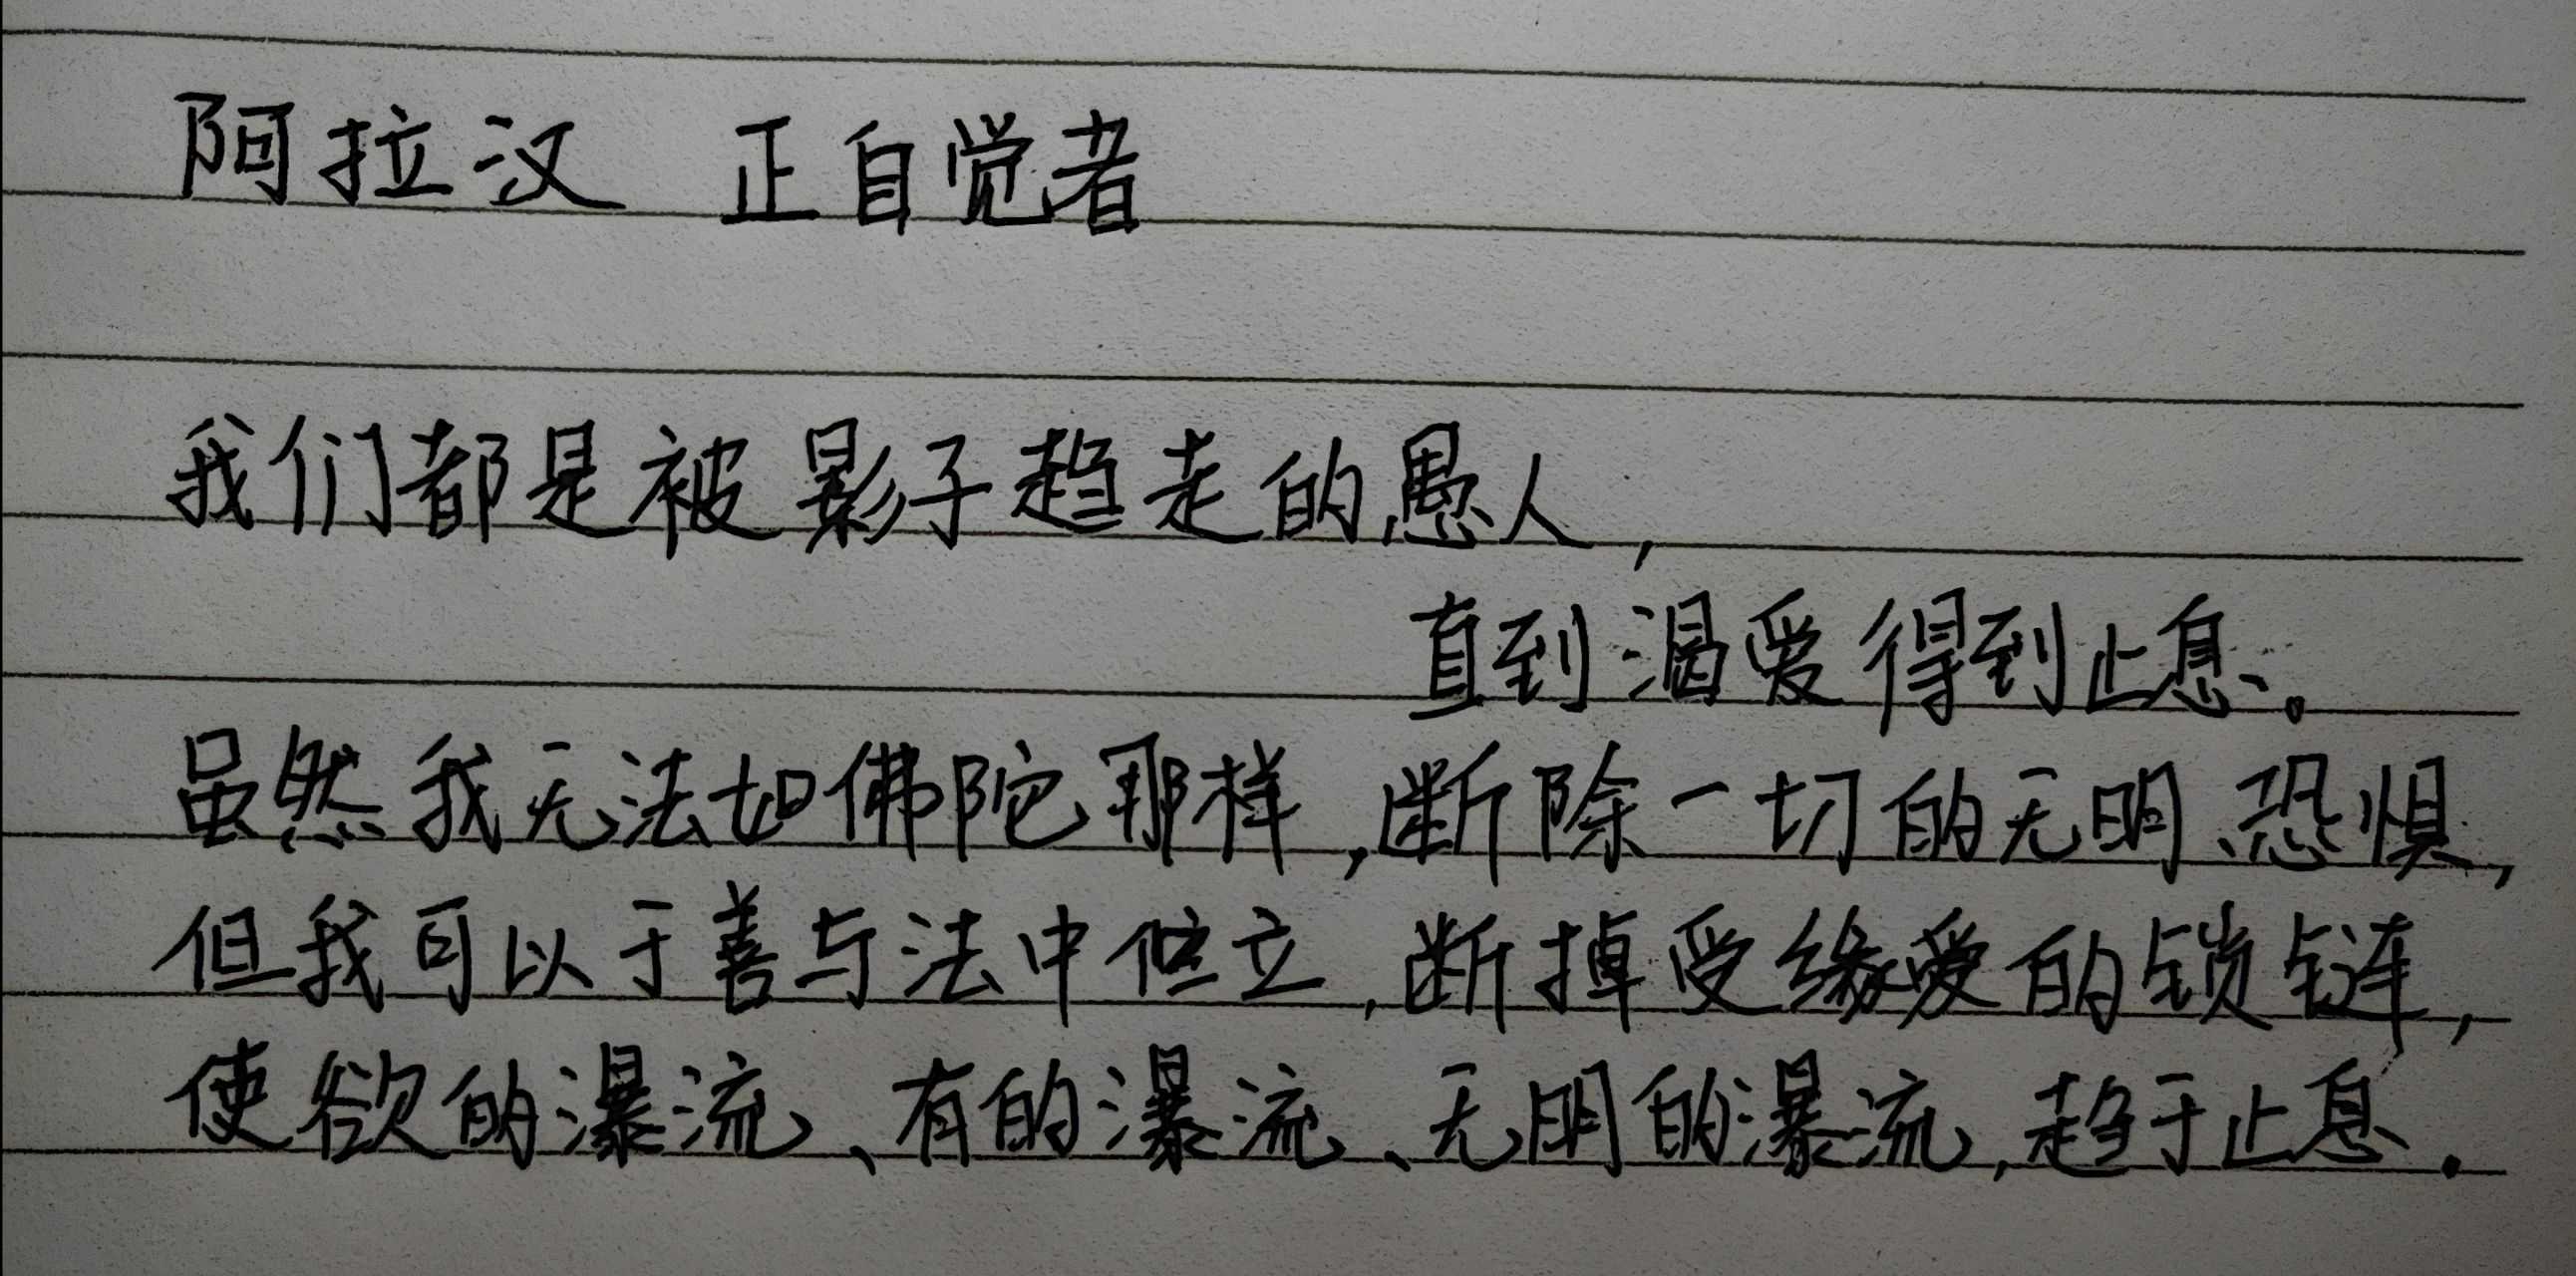 阿拉汉 正自觉者
我们都是被影子趋走的愚人，
直到渴爱得到止息。
虽然我无法如佛陀那样，断除一切的无明、恐惧，
但我可以于善与法中伫立，断掉受缘爱的锁链，
使欲的瀑流、有的瀑流、无明的瀑流，趋于止息.